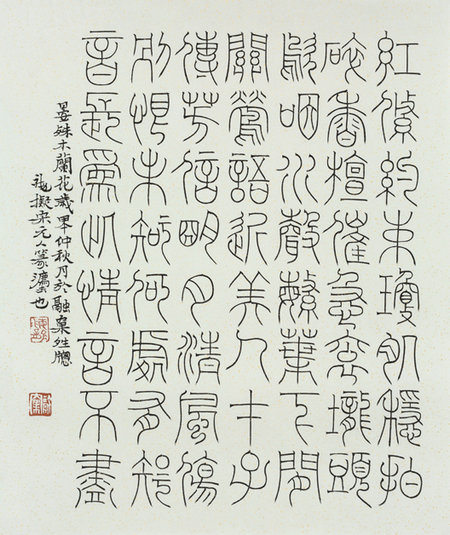 紅絛約束瓊肌穩拍
碎香檀催急袞壠頭
嗚咽水聲繁葉下間
關鶯語近美人才子
傳芳信明月清風傷
別恨未知何處有知
音長為此情言不盡
晏殊木蘭花歲仲秋月於融
擬宋元人篆灋也